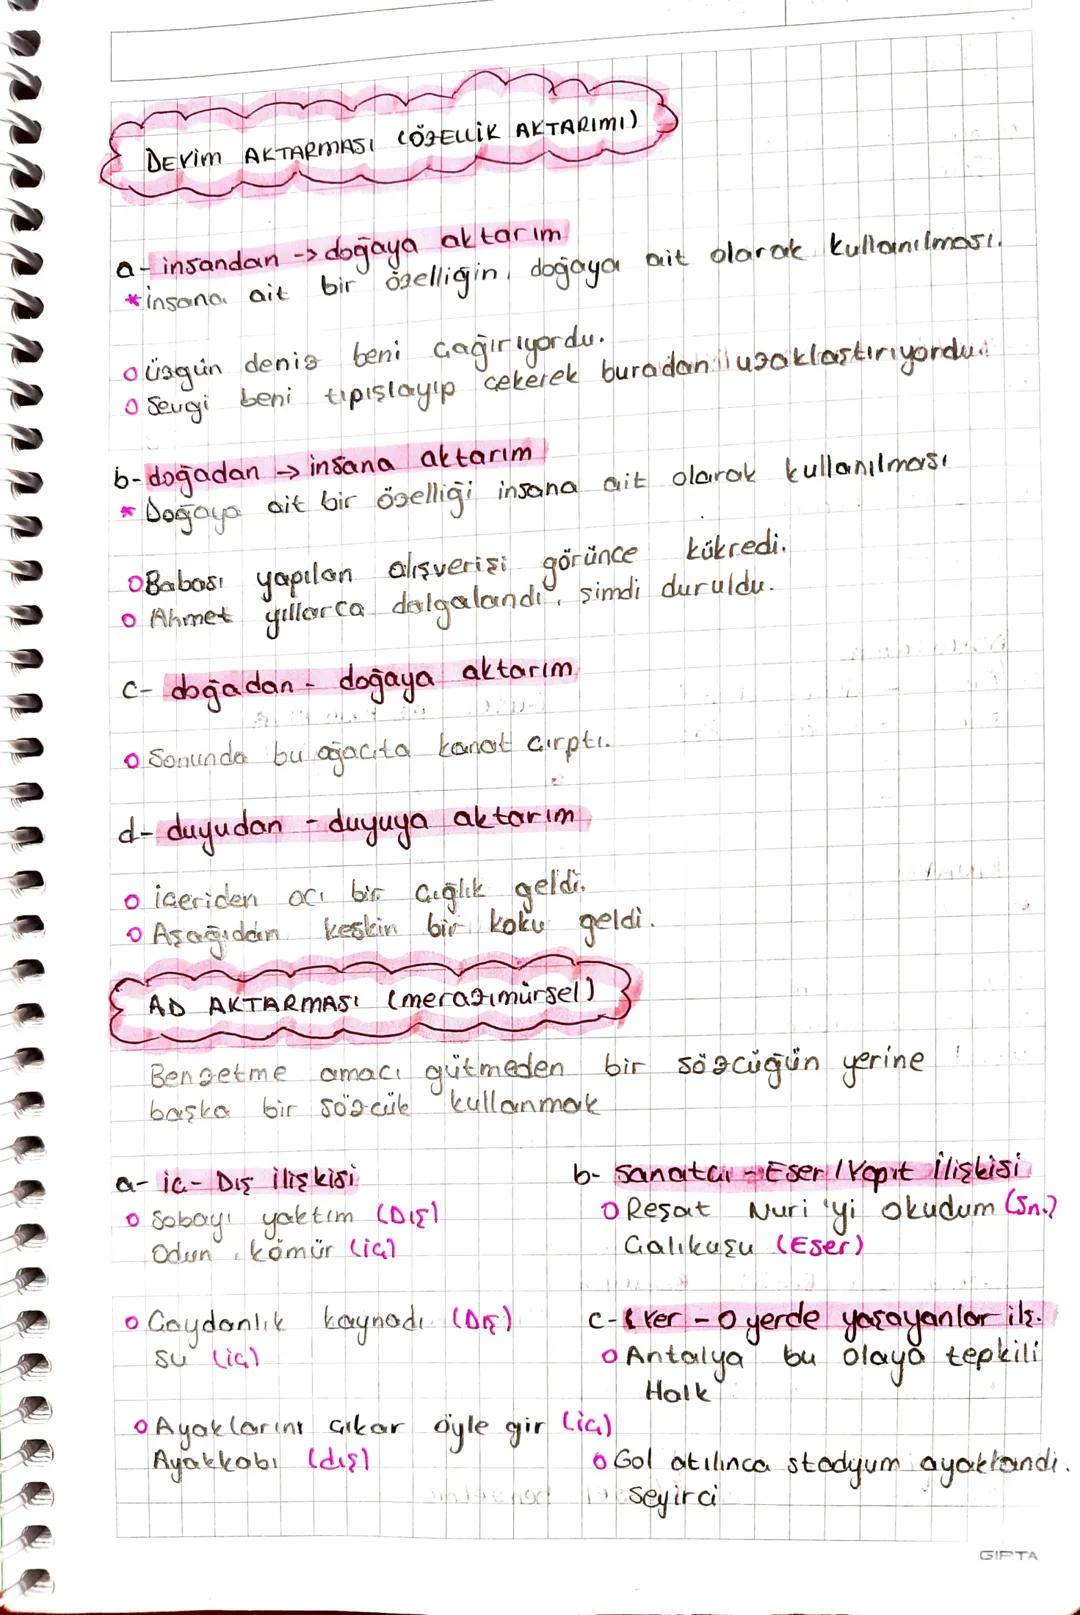 DEYİM AKTARMASI (ÖZELLİK AKTARIMI)
a- insandan -> doğaya aktarım
*insana ait bir özelliğin, doğaya ait olarak kullanılması.
o üzgün deniz beni çağırıyordu.
o Sevgi beni tıpışlayıp çekerek buradan uzaklaştırıyordu.
b- doğadan -> insana aktarım
* Doğaya ait bir özelliği insana ait olarak kullanılması
o Babası yapılan alışverişi görünce kükredi.
o Ahmet yıllarca dalgalandı, şimdi duruldu.
c- doğadan - doğaya aktarım
o Sonunda bu ağaçta kanat çırptı.
d- duyudan - duyuya aktarım
o içeriden acı bir çığlık geldi.
o Aşağıdan keskin bir koku geldi.
AD AKTARMASI (merazımürsel)
Benzetme amacı gütmeden bir sözcüğün yerine
başka bir sözcük kullanmak
a- iç- Dış ilişkisi
o Sobayı yaktım (Dış)
Odun, kömür (iç)
o Çaydanlık kaynadı (Dış)
su (iç)
o Ayaklarını çıkar öyle gir (iç)
Ayakkabı (dış)
b- Sanatçı - Eser / Yapıt İlişkisi
o Reşat Nuri'yi okudum (Sn.)
Çalıkuşu (Eser)
c- Yer - O yerde yaşayanlar ilş.
o Antalya bu olaya tepkili
Halk
o Gol atılınca stadyum ayaklandı.
seyirci
GIPTA